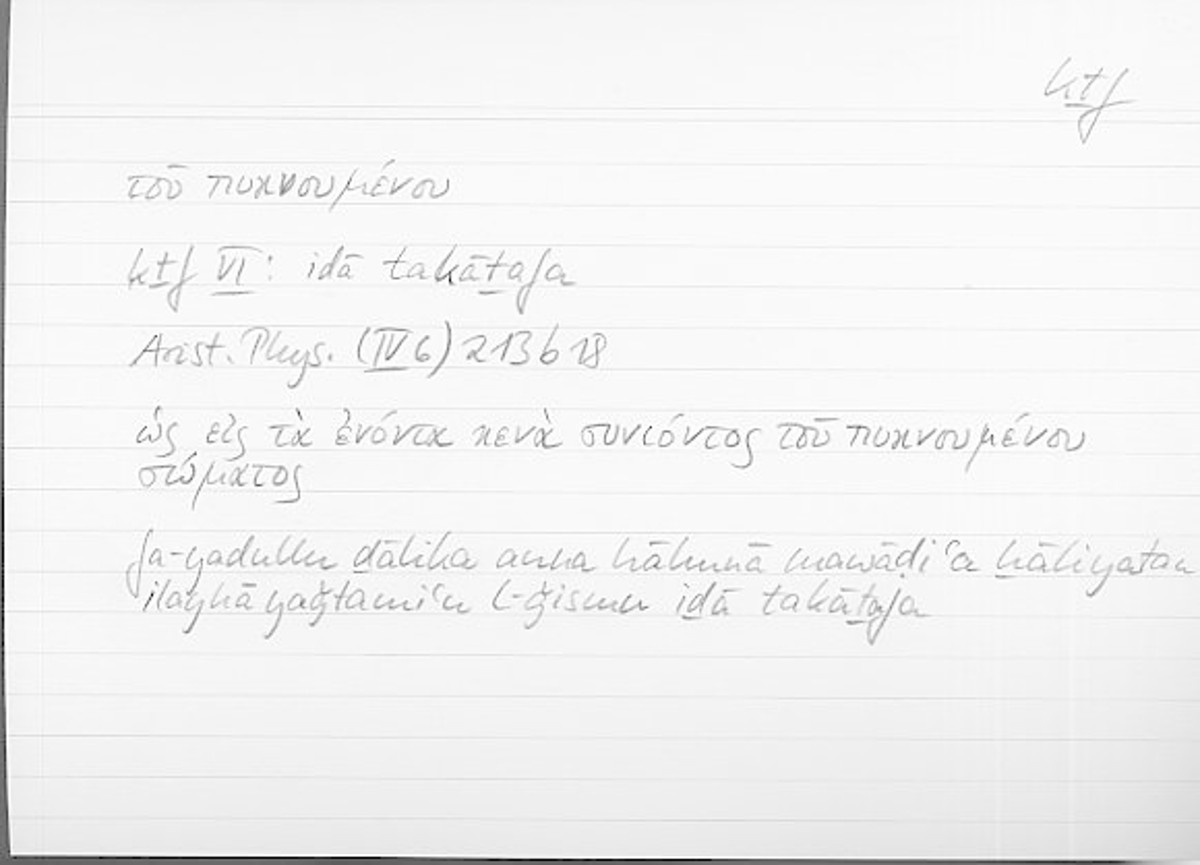 kṯf
τοῦ πυκνουμένου
kṯf VI: idā takāṯafa
Arist. Phys. (IV 6) 213 b 18
ὡς εἰς τὰ ἐνόντα κενὰ συνιόντος τοῦ πυκνουμένου
σώματος
fa-yadullu ḏālika anna hāhunā mawāḍiʿa ḫāliyatan
ilayhā yaǧtamiʿu l-ǧismu iḏā takāṯafa